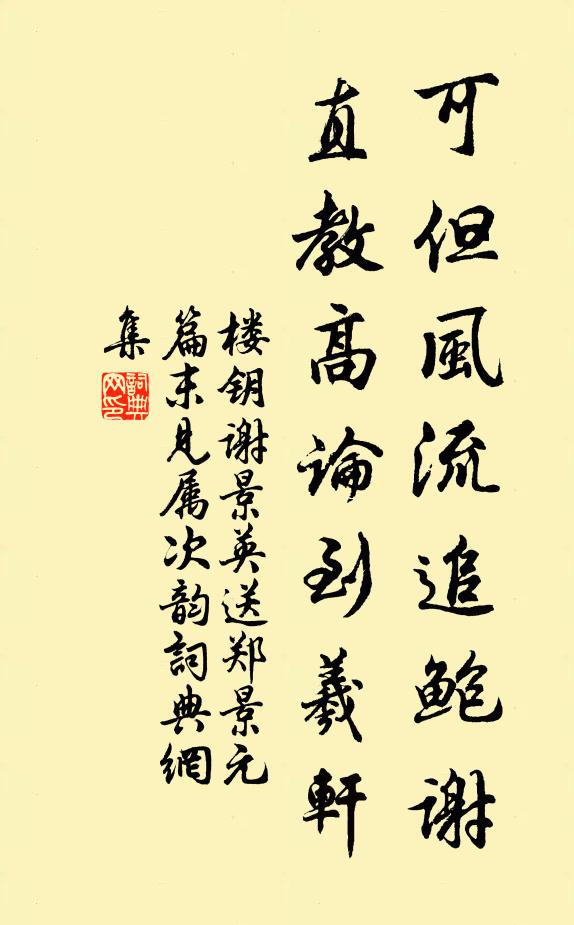 可但風流追鲍谢
直教高論到羲軒
楼钥谢景英送郑景元
篇末見属次韵詞典網
集
詞典
网印